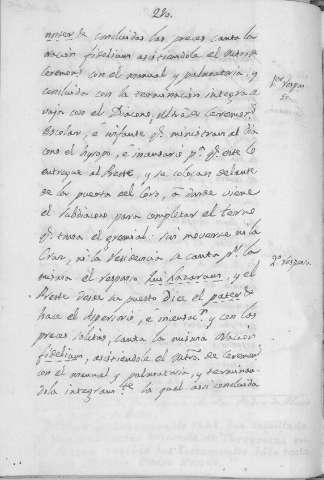 210.
noster &. concluidas las preces canta la
oracion fidelium asistiendole el
Ceremon.s con el manual y palmatoria, y
concluida con la terminacion integra
con el Diacono, de Cerem.s
Escolar, e infante q.e ministran al Dia
cono el hysopo, e incensario p.a q.e este lo
entregue al Preste, y se colocan delante
de la puerta del Coro, a donde viene
el Subdiacono para completar el terno
q.e toma el gremial: sin moverse ni la
Cruz, ni la Presidencia se canta p.r la
misma el responso qui Lazarum, y el
Preste desde su puesto dice el pater &.
hace el Aspersorio, e incensa.n y con las
preces solitas, canta la misma Oracion
fidelium, asistiendole el de Ceremon.s
con el manual y palmatoria, y terminan-
dola integram.te la qual assi concluida
1er Respon
so.
2.o Respons.